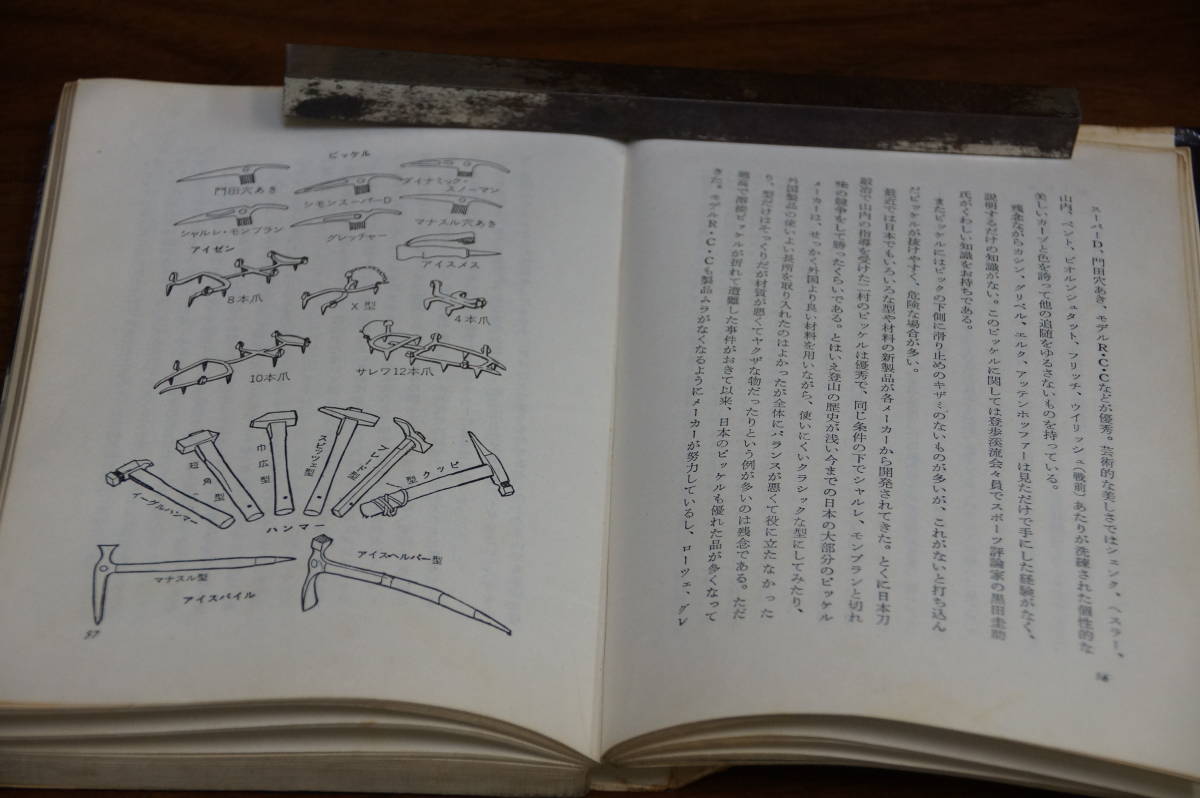 スーパーD、門田穴あき、モデルR・C・Cなどが優秀。芸術的な美しさではシェンク、ヘスラー、
山内、ベント、ビオルンシュタット、フリッチ、ウイリッシュ(戦前)あたりが洗練された個性的な
美しいカーブと色を誇って他の追随をゆるさないものを持っている。
残念ながらカシン、グリベル、エルク、アッテンホッファーは見ただけで手にした経験がなく、
説明するだけの知識がない。このピッケルに関しては登歩渓流会々員でスポーツ評論家の黒田圭助
氏がくわしい知識をお持ちである。
またピッケルにはピックの下側に滑り止めのキザミのないものが多いが、これがないと打ち込ん
だピッケルが抜けやすく、危険な場合が多い。
最近では日本でもいろいろな型や材料の新製品が各メーカーから開発されてきた。とくに日本刀
鍛冶で山内の指導を受けた二村のピッケルは優秀で、同じ条件の下でシャルレ、モンブランと切れ
味の競争をして勝ったくらいである。とはいえ登山の歴史が浅い今までの日本の大部分のピッケル
メーカーは、せっかく外国より良い材料を用いながら、使いにくいクラシックな型にしてみたり、
外国製品の使いよい長所を取り入れたのはよかったが全体にバランスが悪くて役に立たなかった
り、型だけはそっくりだが材質が悪くてヤクザな物だったりという例が多いのは残念である。ただ
穂高で溶接ピッケルが折れて遭難した事件がおきて以来、日本のピッケルも優れた品が多くなって
きた。モデルR・C・Cも製品ムラがなくなるようにメーカーが努力しているし、ローツェ、グレ
56
ピッケル
門田穴あき
シモンスーパーD
ダイナミック・
スノーマン
シャルレ・モンブラン
グレッチャー
マナスル穴あき
アイゼン
アイスメス
8本爪
X型
4本爪
10本爪
サレワ12本爪
イーグルハンマー
短角型
巾広型
スピッツェ型
ブレード型
クッピ型
ハンマー
マナスル型
アイスヘルパー型
アイスバイル
57